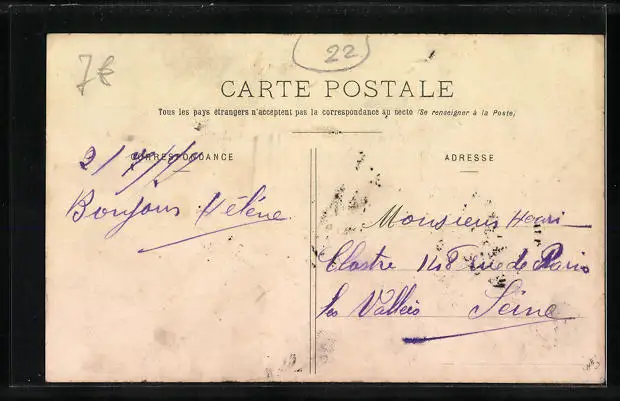 7€
22
CARTE POSTALE
Tous les pays étrangers n'acceptent pas la correspondance au recto (Se renseigner à la Poste)
CORRESPONDANCE
ADRESSE
Bonjour Hélène
Monsieur Henri
148 rue de Paris
Les Vallées Seine